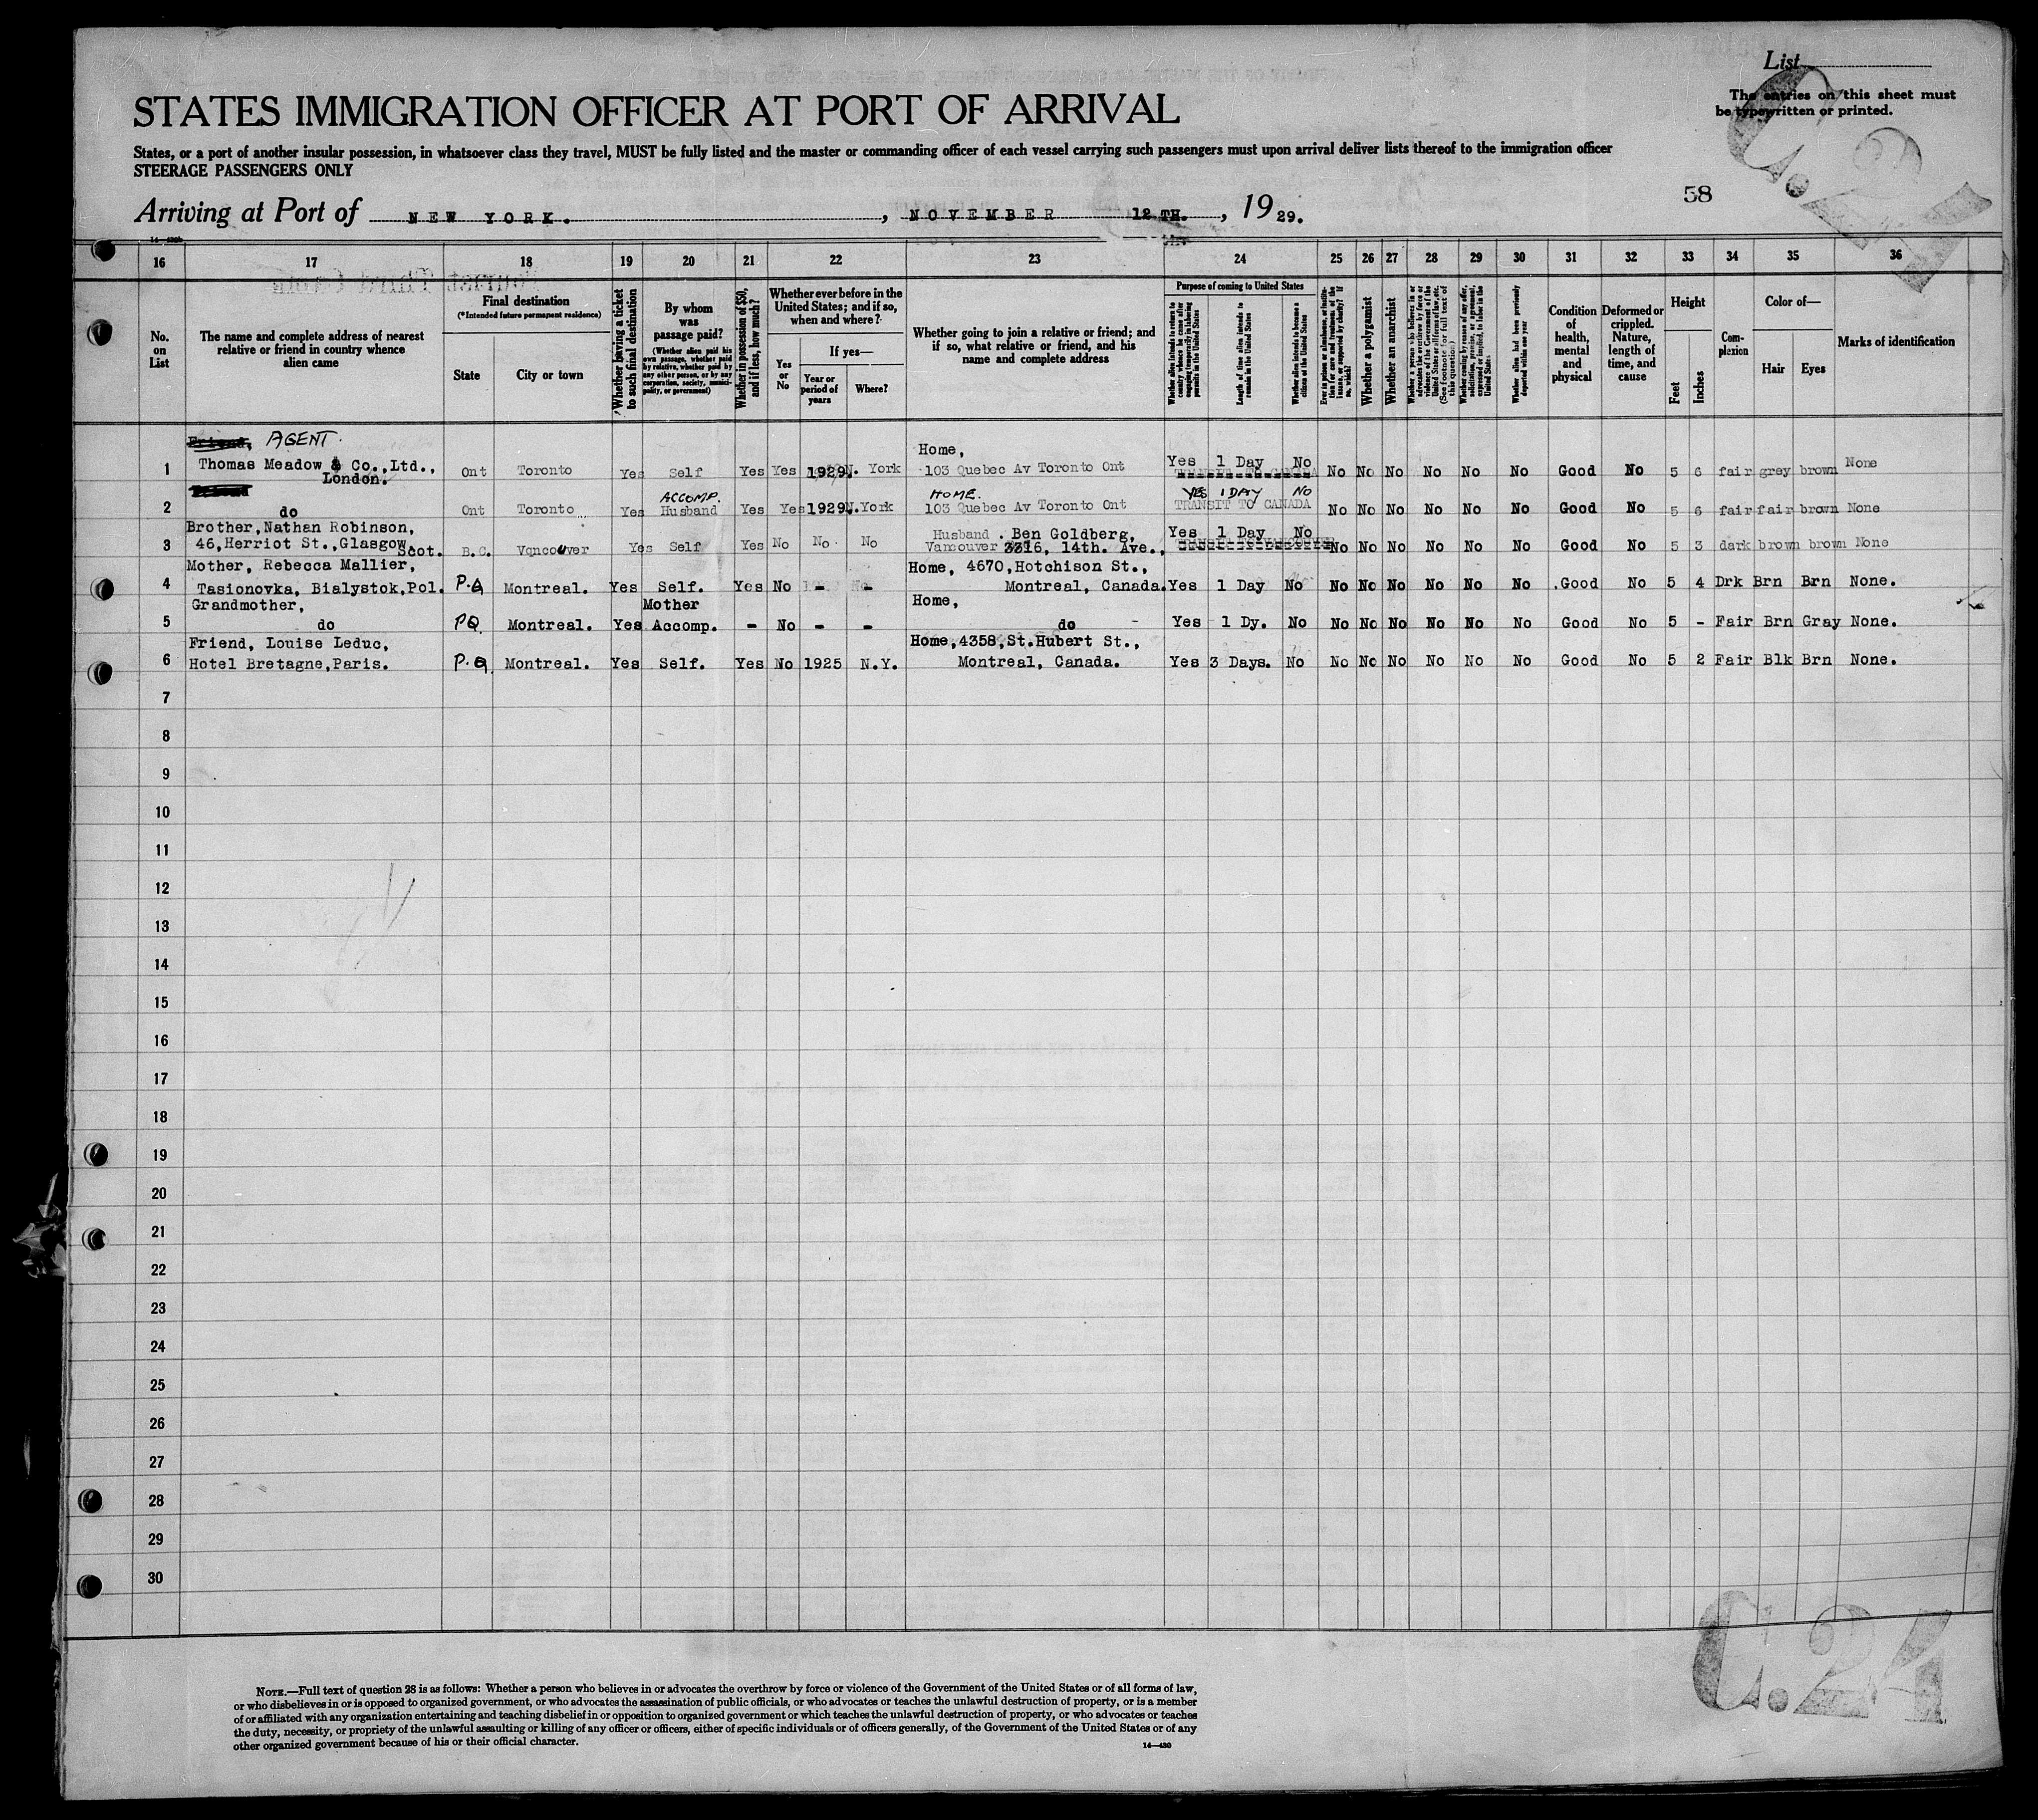 List
The entries on this sheet must
be typewritten or printed.
STATES IMMIGRATION OFFICER AT PORT OF ARRIVAL
States, or a port of another insular possession, in whatsoever class they travel, MUST be fully listed and the master or commanding officer of each vessel carrying such passengers must upon arrival deliver lists thereof to the immigration officer
STEERAGE PASSENGERS ONLY
58
Arriving at Port of NEW YORK. , NOVEMBER 12TH. , 1929.
16 17 18 19 20 21 22 23 24 25 26 27 28 29 30 31 32 33 34 35 36
No. on List
The name and complete address of nearest relative or friend in country whence alien came
Final destination
(*Intended future permanent residence)
State
City or town
Whether having a ticket to such final destination
By whom was passage paid?
(Whether alien paid his own passage, whether paid by relative, whether paid by any other person, or by any corporation, society, municipality, or government)
Whether in possession of $50, and if less, how much?
Whether ever before in the United States; and if so, when and where?
Yes or No
If yes—
Year or period of years
Where?
Whether going to join a relative or friend; and if so, what relative or friend, and his name and complete address
Purpose of coming to United States
Whether alien intends to return to country whence he came after engaging temporarily in laboring permits in the United States
Length of time alien intends to remain in the United States
Whether alien intends to become a citizen of the United States
Ever in prison or almshouse, or institution for care and treatment of the insane, or supported by charity? If so, which?
Whether a polygamist
Whether an anarchist
Whether a person who believes in or advocates the overthrow by force or violence of the Government of the United States or all forms of law, etc. (See footnote for full text of this question)
Whether coming by reason of any offer, solicitation, promise, or agreement, expressed or implied, to labor in the United States
Whether alien had been previously deported within one year
Condition of health, mental and physical
Deformed or crippled. Nature, length of time, and cause
Height
Feet
Inches
Complexion
Color of—
Hair
Eyes
Marks of identification
Friend, AGENT.
1 Thomas Meadow & Co.,Ltd., London. Ont Toronto Yes Self Yes Yes 1929 N. York Home, 103 Quebec Av Toronto Ont Yes 1 Day No TRANSIT TO CANADA No No No No No No Good No 5 6 fair grey brown None
Friend
2 do Ont Toronto Yes ACCOMP. Husband Yes Yes 1929 N.York HOME. 103 Quebec Av Toronto Ont YES 1 DAY NO TRANSIT TO CANADA No No No No No No Good No 5 6 fair fair brown None
Brother,Nathan Robinson,
3 46,Herriot St.,Glasgow, Scot. B.C. Vancouver Yes Self Yes No No No Husband . Ben Goldberg, Vancouver 3316, 14th. Ave., Yes 1 Day No No No No No No No Good No 5 3 dark brown brown None
Mother, Rebecca Mallier,
4 Tasionovka, Bialystok,Pol. P.Q Montreal. Yes Self. Yes No - - Home, 4670,Hotchison St., Montreal, Canada. Yes 1 Day No No No No No No No Good No 5 4 Drk Brn Brn None.
Grandmother,
5 do PQ Montreal. Yes Mother Accomp. - No - - Home, do Yes 1 Dy. No No No No No No No Good No 5 - Fair Brn Gray None.
Friend, Louise Leduc,
6 Hotel Bretagne,Paris. P.Q Montreal. Yes Self. Yes No 1925 N.Y. Home,4358,St.Hubert St., Montreal, Canada. Yes 3 Days. No No No No No No No Good No 5 2 Fair Blk Brn None.
7
8
9
10
11
12
13
14
15
16
17
18
19
20
21
22
23
24
25
26
27
28
29
30
C.24
NOTE.—Full text of question 28 is as follows: Whether a person who believes in or advocates the overthrow by force or violence of the Government of the United States or of all forms of law,
or who disbelieves in or is opposed to organized government, or who advocates the assassination of public officials, or who advocates or teaches the unlawful destruction of property, or is a member
of or affiliated with any organization entertaining and teaching disbelief in or opposition to organized government or which teaches the unlawful destruction of property, or who advocates or teaches
the duty, necessity, or propriety of the unlawful assaulting or killing of any officer or officers, either of specific individuals or of officers generally, of the Government of the United States or of any
other organized government because of his or their official character.
14—430